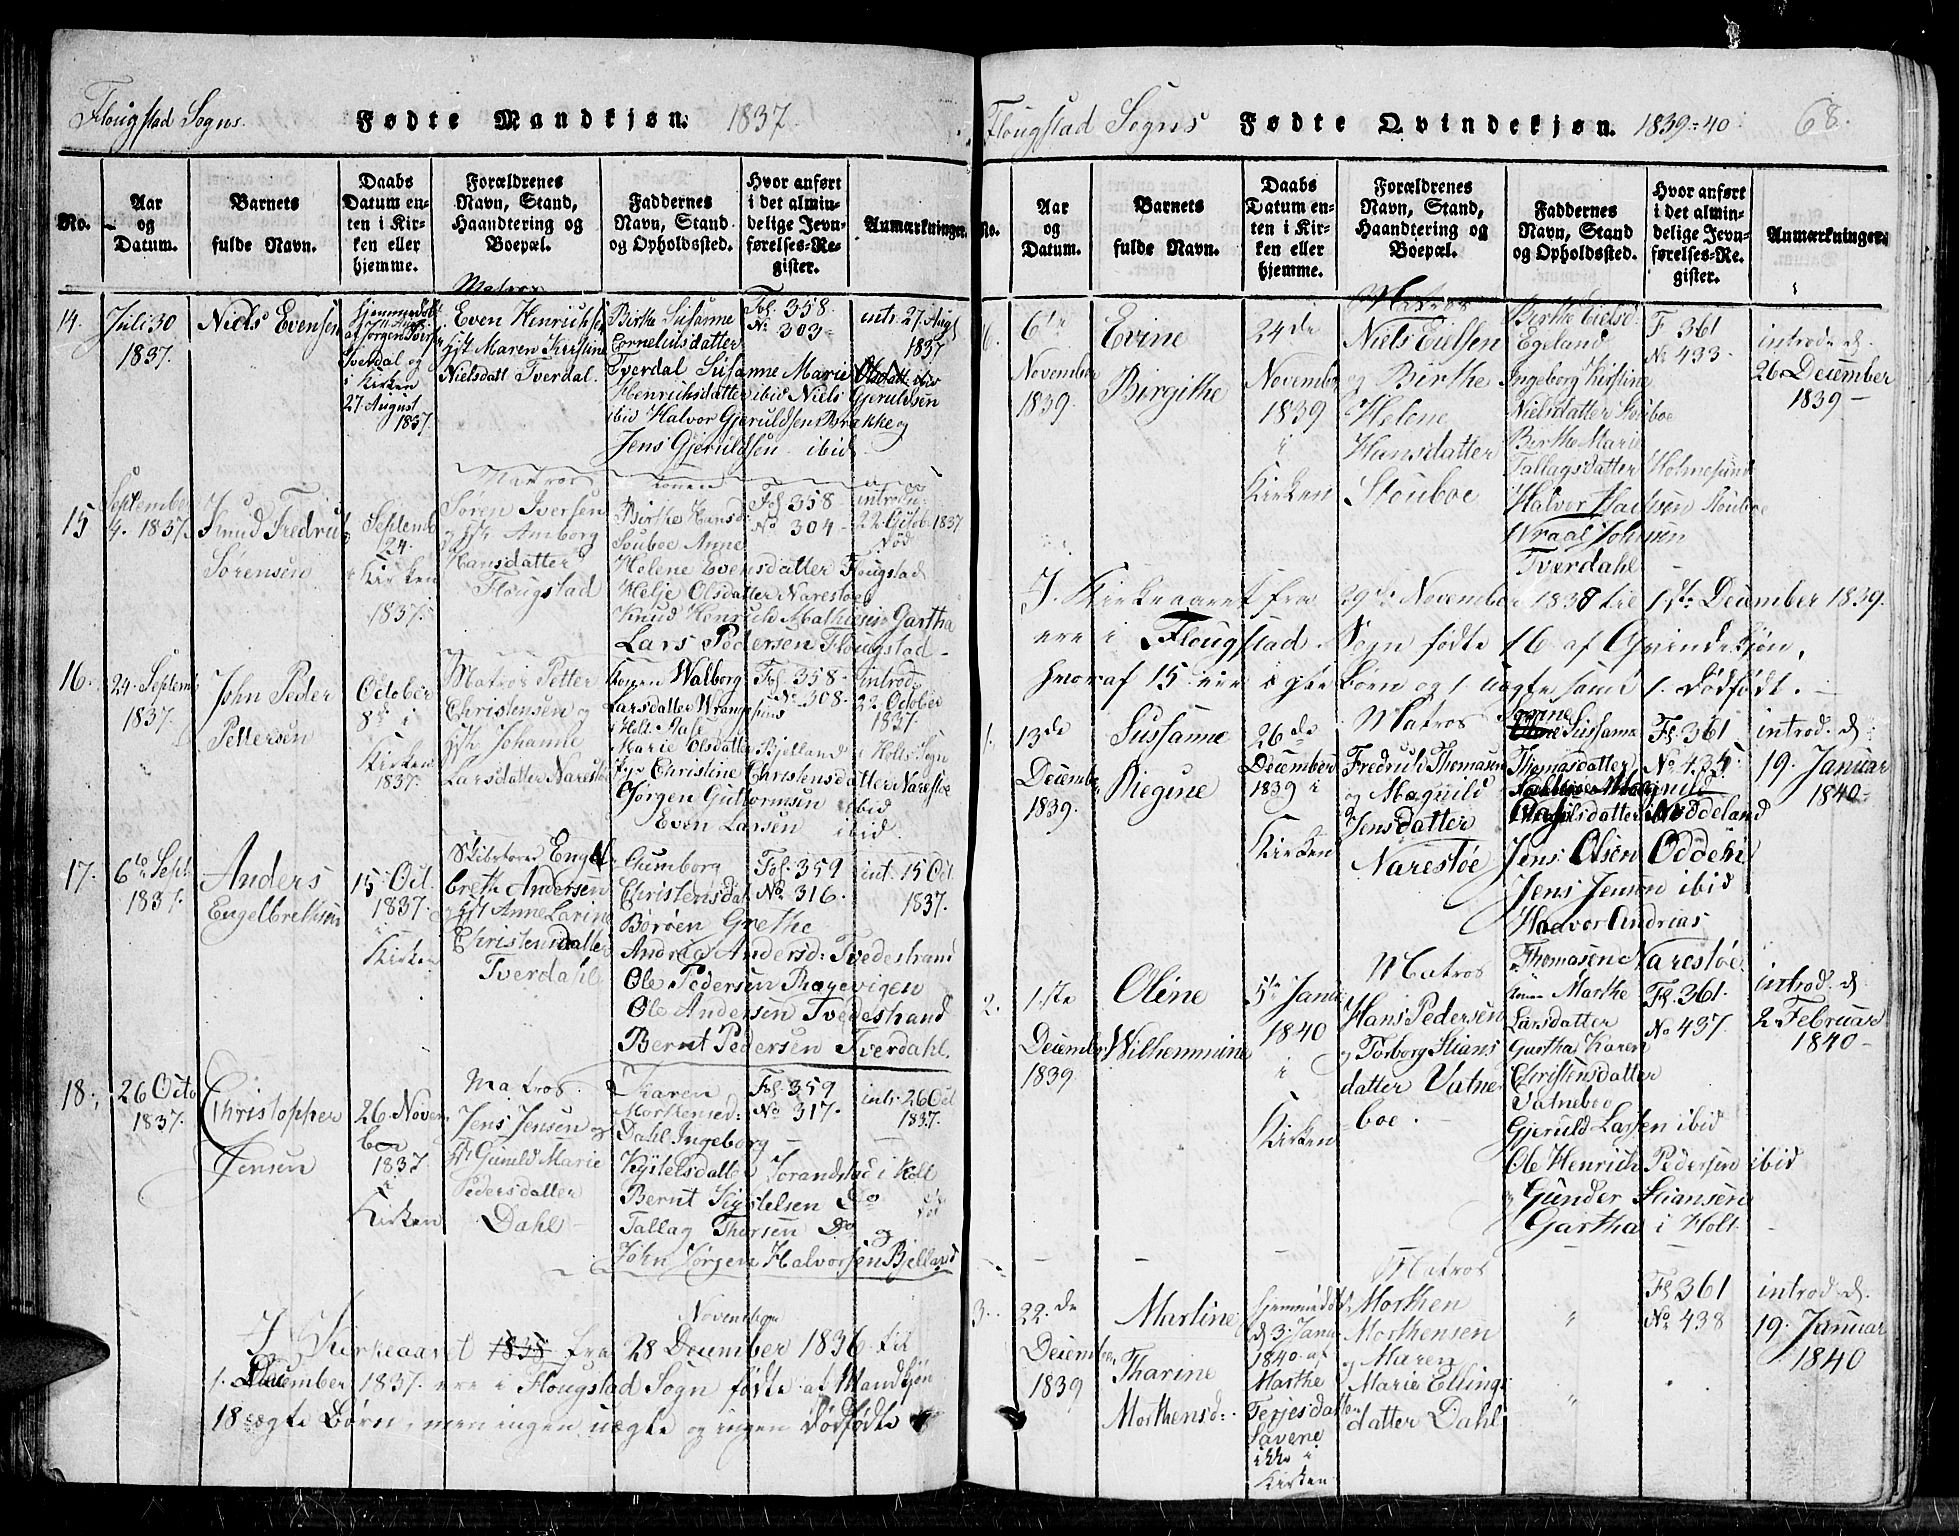 Flougstad Sogns.
Fødte Mandkjøn. 1837.
No.
Aar
og
Datum.
Barnets
fulde Navn.
Daabs
Datum en-
ten i Kir-
ken eller
hjemme.
Forældrenes
Navn, Stand,
Haandtering og
Boepæl.
Faddernes
Navn, Stand
og Opholdssted.
Hvor anført
i det almin-
delige Jevn-
førelses-Re-
gister.
Anmærkninger.
14.
Juli 30
1837.
Niels Evensen
Hjemmedøbt
Tverdal og
i Kirken
27 August
1837.
Matros
Even Henrichsen
Maren Kirstine
Nielsdatt Tverdal.
Birthe Susanne
Cornelulsdatter
Tverdal Susanne Marie
Henrichsdatter ibid Niels Gjeruldsen
ibid Halvor Gjeruldsen Brække og
Jens Gjeruldsen ibid
Fol 358
No 303
intr. 27 Augt
1837
15
September
4. 1837.
Knud Fredrich
Sørensen
Septemb
24.
i Kirken
1837.
Matros
Søren Iversen
Amborg
Hansdatter
Flougstad
konen
Birthe Hansd
Souboe Anne
Helene Evensdatter Flougstad
Helje Olsdatter Narestøe
Knud Henrich Mathiesen Gartha
Lars Pedersen Flougstad
Fol 358
No 304
introd.
22. Octob. 1837
16.
24. Septemb
1837.
John Peder
Pettersen
October
8de i
Kirken
1837.
Matros Petter
Christensen og
Johanne
Larsdatter Narestøe
konen Walborg
Larsdatter
Marie Olsdatter Bjelland i Holts Sogn
Christine Christensdatter Narestøe
Jørgen Guttormsen ibid
Even Larsen ibid.
Fol. 358
No 308
introd.
22 October
1837.
17.
6te Sept
1837.
Anders
Engelbrethsen
15 Oct.
1837.
i
Kirken
Skibsfører Engel-
breth Andersen
Anne Larine
Christensdatter
Tverdahl
Gumborg
Christensdat
Borøen Grethe
Andrea Andersd: Tvedestrand
Ole Pedersen Hagevigen
Ole Andersen Tvedestrand
Bernt Pedersen Tverdahl.
Fol. 359
No 316.
int. 15 Oct.
1837.
18.
26 Octo
1837.
Christopher
Jensen
26. Novem
ber
1837
i
Kirken
Matros.
Jens Jensen og
Gunild Marie
Pedersdatter
Dahl
Karen
Morthensd:
Dahl Ingeborg
Kystelsdatter Strandstad i Holt
Bernt Kystelsen Do
Tallag Thorsen Do og
John Jørgen Halvorsen Bjelland
Fol. 359
No 317.
intr. 26 Oct
1837.
November
I Kirkeaaret 1838 fra 28 December 1836 til
1. December 1837. ere i Flougstad Sogn fødte af Mandkjøn
18 ægte Børn, men ingen uægte og ingen Dødfødte
Flougstad Sogns
Fødte Qvindekjøn. 1839-40
68.
No.
Aar
og
Datum.
Barnets
fulde Navn.
Daabs
Datum en-
ten i Kir-
ken eller
hjemme.
Forældrenes
Navn, Stand,
Haandtering og
Boepæl.
Faddernes
Navn, Stand
og Opholdssted.
Hvor anført
i det almin-
delige Jevn-
førelses-Re-
gister.
Anmærkninger.
6.
6te
November
1839.
Evine
Birgithe
24de
November
1839
i
Kirken
Matros
Niels Eielsen
og Birthe
Helene
Hansdatter
Stouboe
Birthe Eielsd
Egeland
Ingeborg Kirstine
Nielsdatter Stouboe
Birthe Marie
Tallagsdatter Holmesund
Halvor Stouboe
Wraal Johnsen
Tværdahl
F 361
No 433.
introd. d.
26 December
1839
I Kirkeaaret fra 29de November 1838 til 1ste December 1839.
ere i Flougstad Sogn fødte 16 af Qvindekjøn,
hvoraf 15 ere ægte Børn og 1. uægte samt 1. Dødfødt.
1.
13de
December
1839.
Susanne
Regine
26de
December
1839 i
Kirken
Matros
Fredrich Thomasen
og Magnild
Jensdatter
Narestøe
Susanne
Thomasdatter
Moddeland
Jens Olsen Oddehei
Jens Jensen ibid
Haavor Andreas
Thomasen Narestøe.
Fl. 361
No 435.
introd. d.
19. Januar
1840
2.
1.ste
December
1839
Oline
Wilhemmine
5te Janu
1840
i
Kirken
Matros
Hans Pedersen
og Torborg Stians
datter Vatne
boe.
konen Marthe
Larsdatter
Gartha Karen
Christensdatter
Vatneboe
Gjeruld Larsen ibid
Ole Henrich Pedersen ibid
og Gunder Stiansen
Gartha i Holt.
Fl. 361.
No 437.
introd. d.
2 Februar
1840
3.
22.de
December
1839
Martine
Tharine
Morthensd:
Hjemmedøbt
d 3. Janu
1840. af
Marthe
Terjesdatter
Savene
ikke i
Kirken
Matros
Morthen
Morthensen
og Maren
Marie Ellings
datter Dahl
"
"
Fl 361
No 438
introd. d.
19. Januar
1840